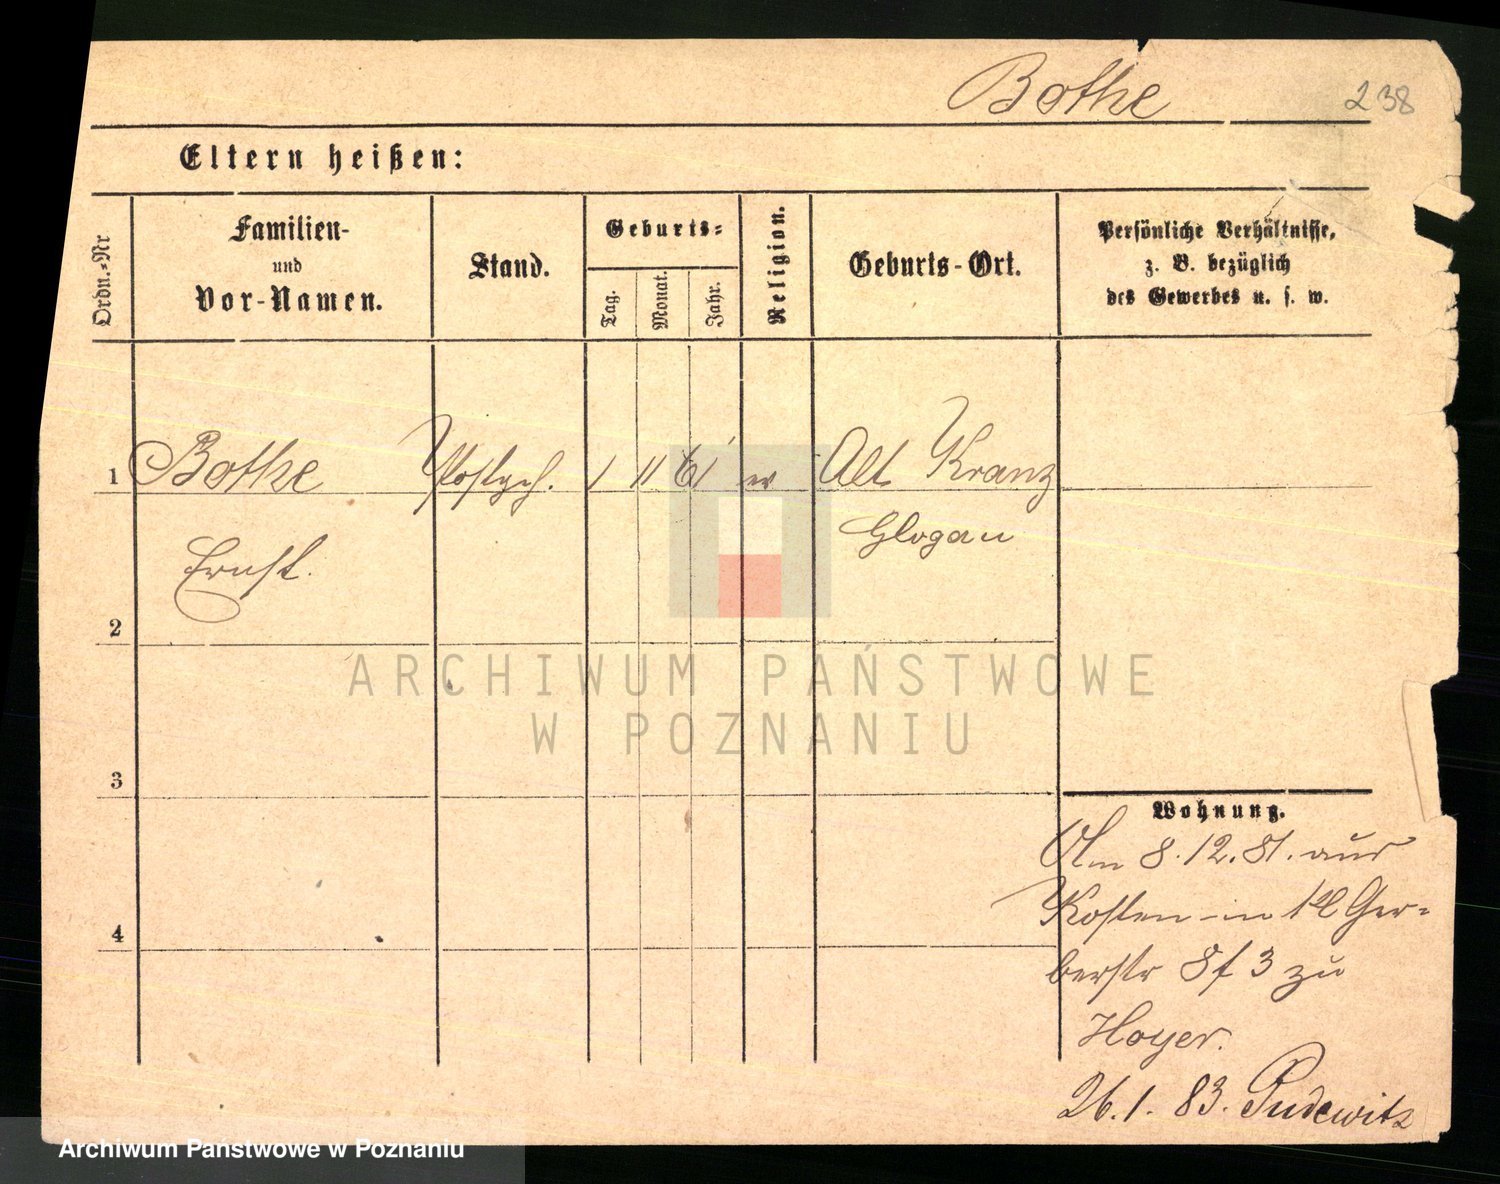 Bothe
238
Eltern heißen:
Ordn.-Nr
Familien-
und
Vor-Namen.
Stand.
Geburts-
Tag.
Monat.
Jahr.
Religion.
Geburts-Ort.
Persönliche Verhältnisse,
z. B. bezüglich
des Gewerbes u. s. w.
1 Bothe Postgeh. 1 11 61 ev Alt Kranz
Glogau
Ernst.
2
3
4
Wohnung.
Am 8.12.81. aus
Kosten in Ger-
berstr 8 f 3 zu
Hoyer.
26.1.83. Pudewitz
ARCHIWUM PAŃSTWOWE
W POZNANIU
Archiwum Państwowe w Poznaniu